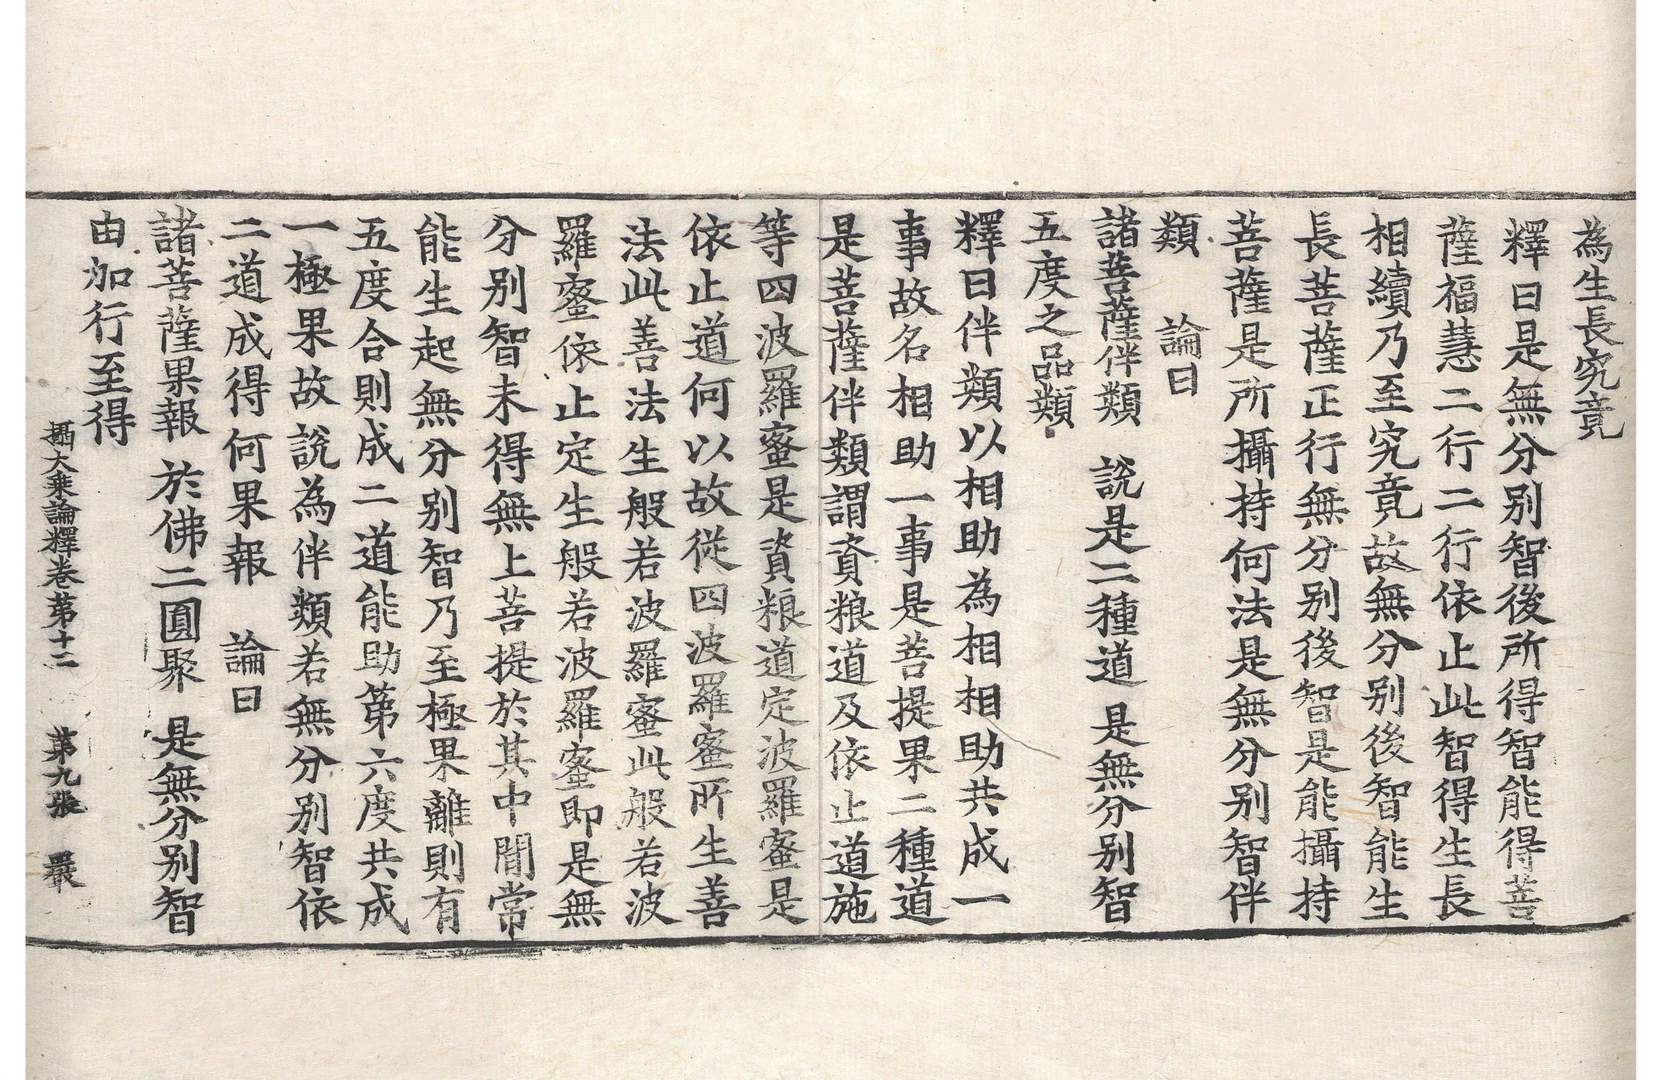 為生長究竟
釋曰是無分別智後所得智能得菩
薩福慧二行二行依止此智得生長
相續乃至究竟故無分別後智能生
長菩薩正行無分別後智是能攝持
菩薩是所攝持何法是無分別智伴
類　論曰
諸菩薩伴類　說是二種道　是無分別智
五度之品類
釋曰伴類以相助為相相助共成一
事故名相助一事是菩提果二種道
是菩薩伴類謂資粮道及依止道施
等四波羅蜜是資粮道定波羅蜜是
依止道何以故從四波羅蜜所生善
法此善法生般若波羅蜜此般若波
羅蜜依止定生般若波羅蜜即是無
分別智未得無上菩提於其中間常
能生起無分別智乃至極果離則有
五度合則成二道能助第六度共成
一極果故說為伴類若無分別智依
二道成得何果報　論曰
諸菩薩果報　於佛二圓聚　是無分別智
由加行至得
攝大乘論釋卷第十二　第九張　嚴